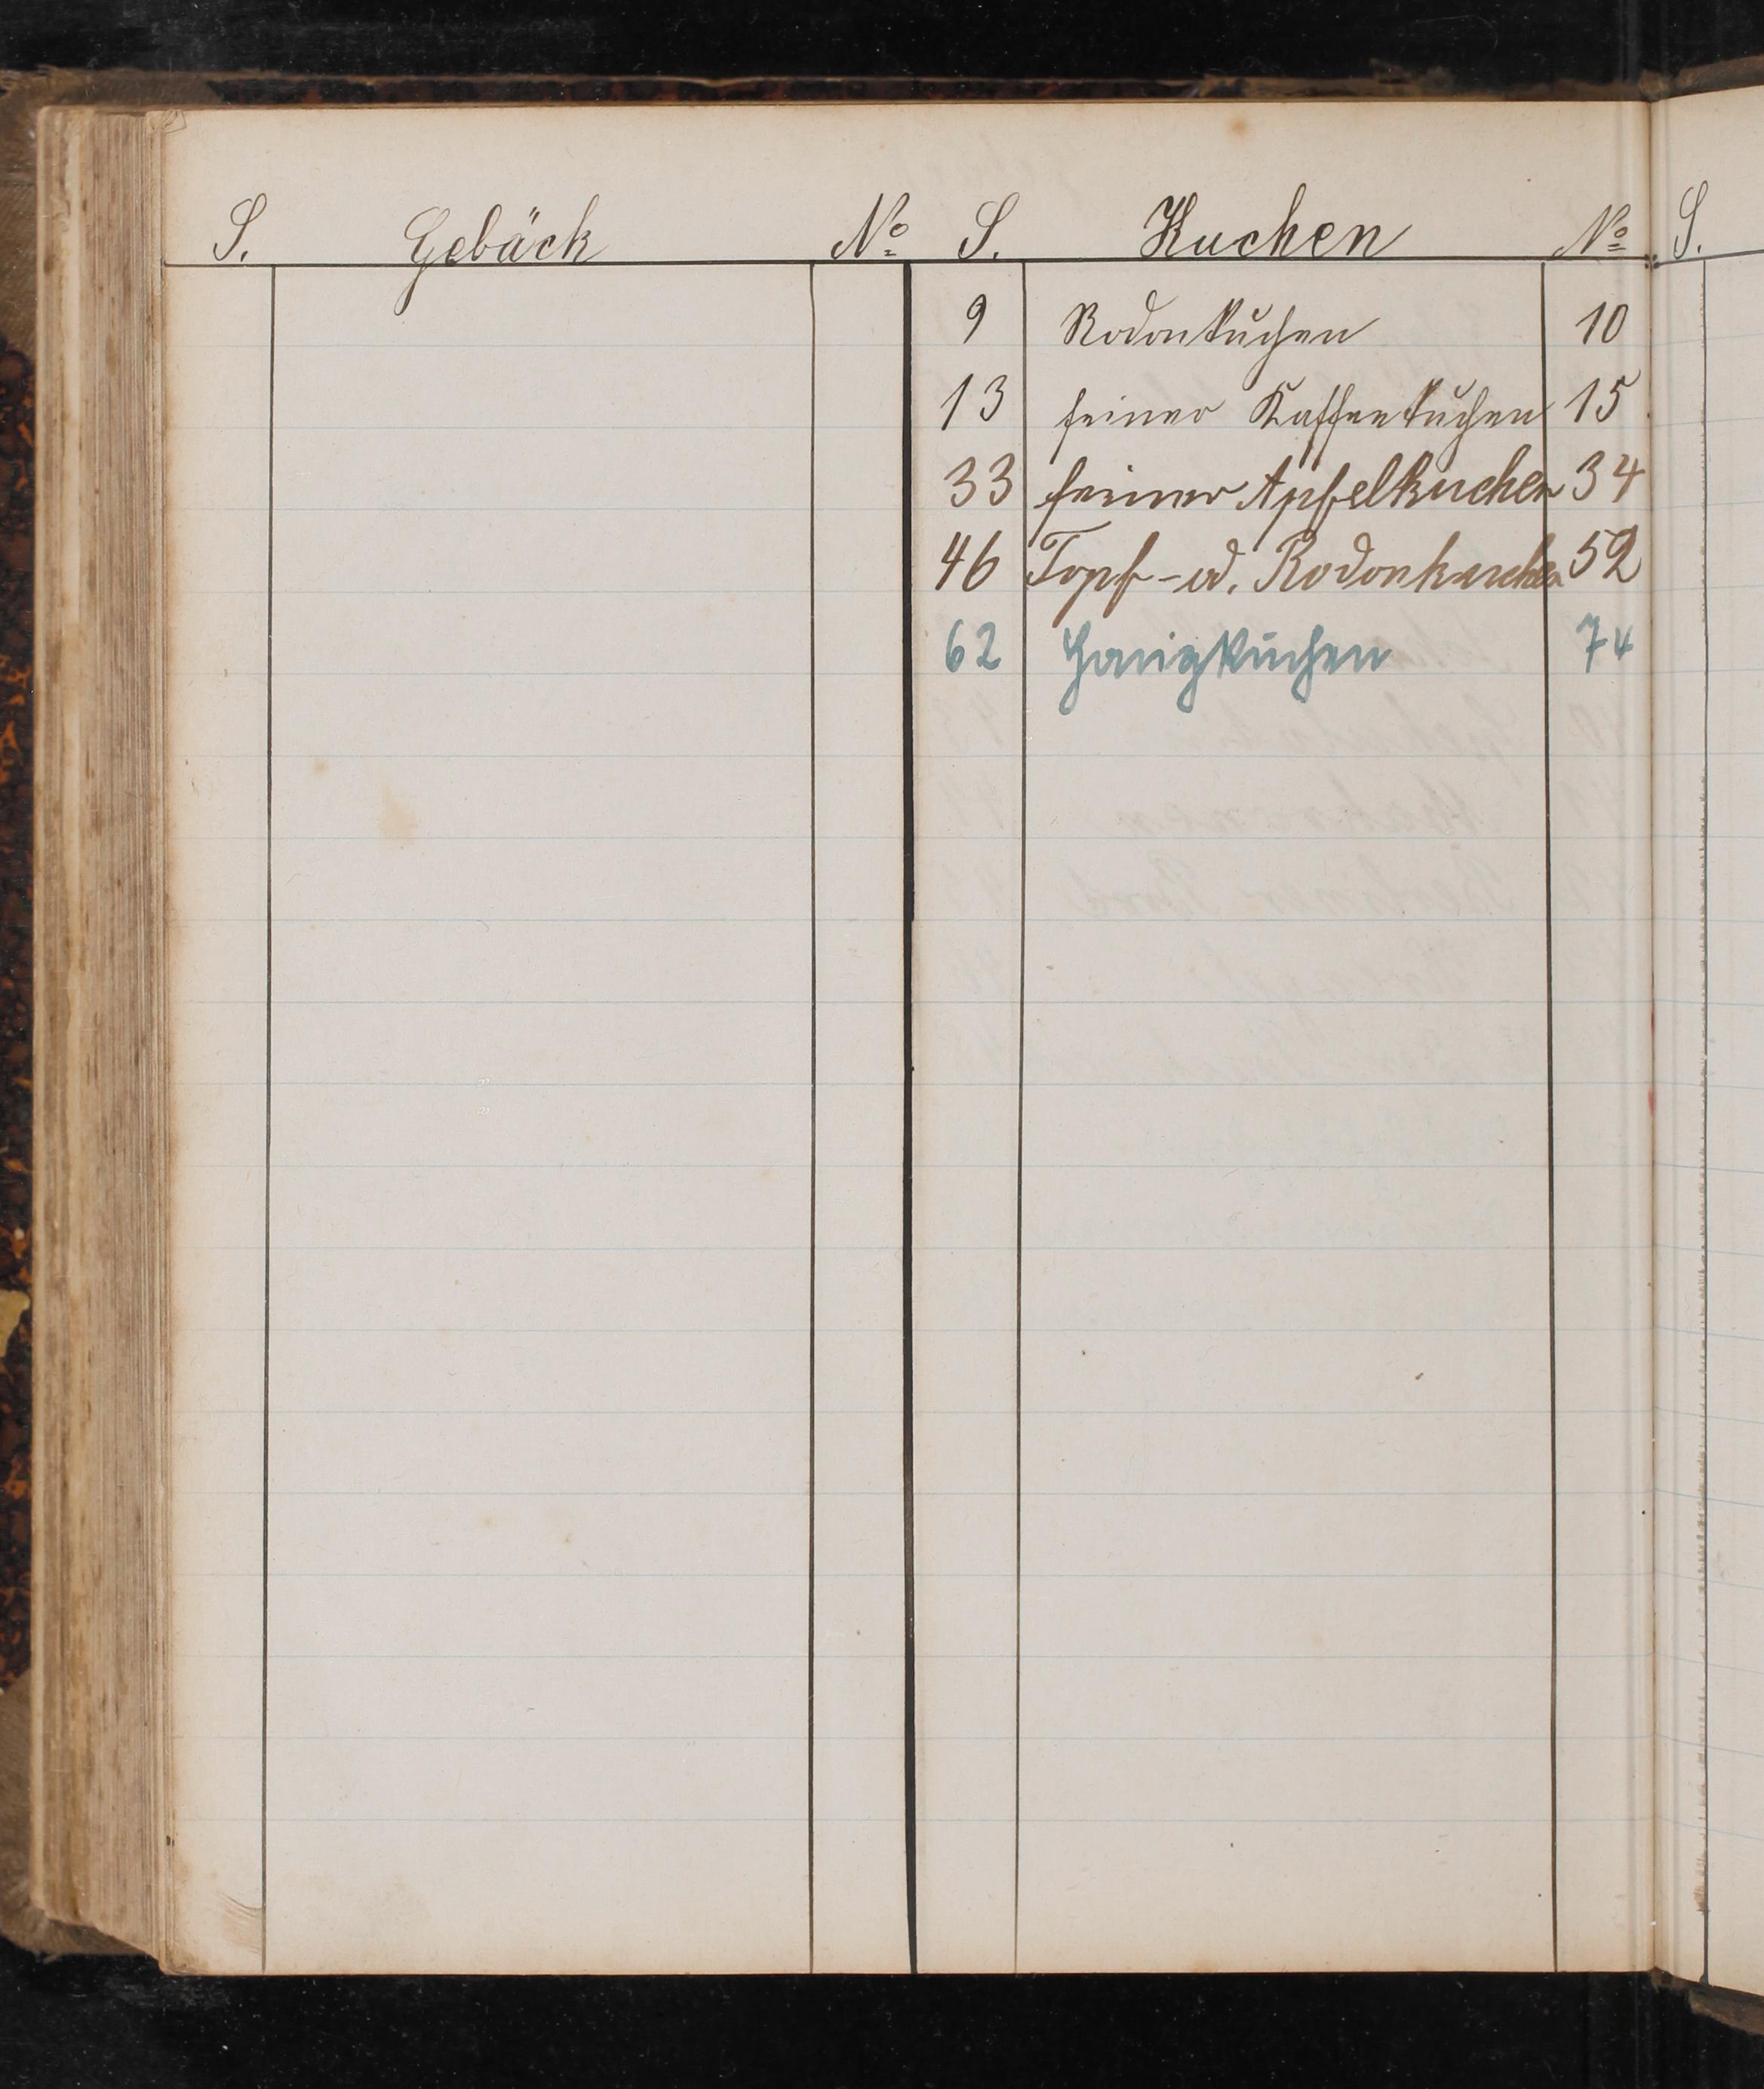 S. Gebäck No S. Kuchen No S.
9 Rodonkuchen 10
13 feiner Kaffeekuchen 15
33 feiner Apfelkuchen 34
46 Topf- od. Rodonkuchen 52
62 Honigkuchen 74